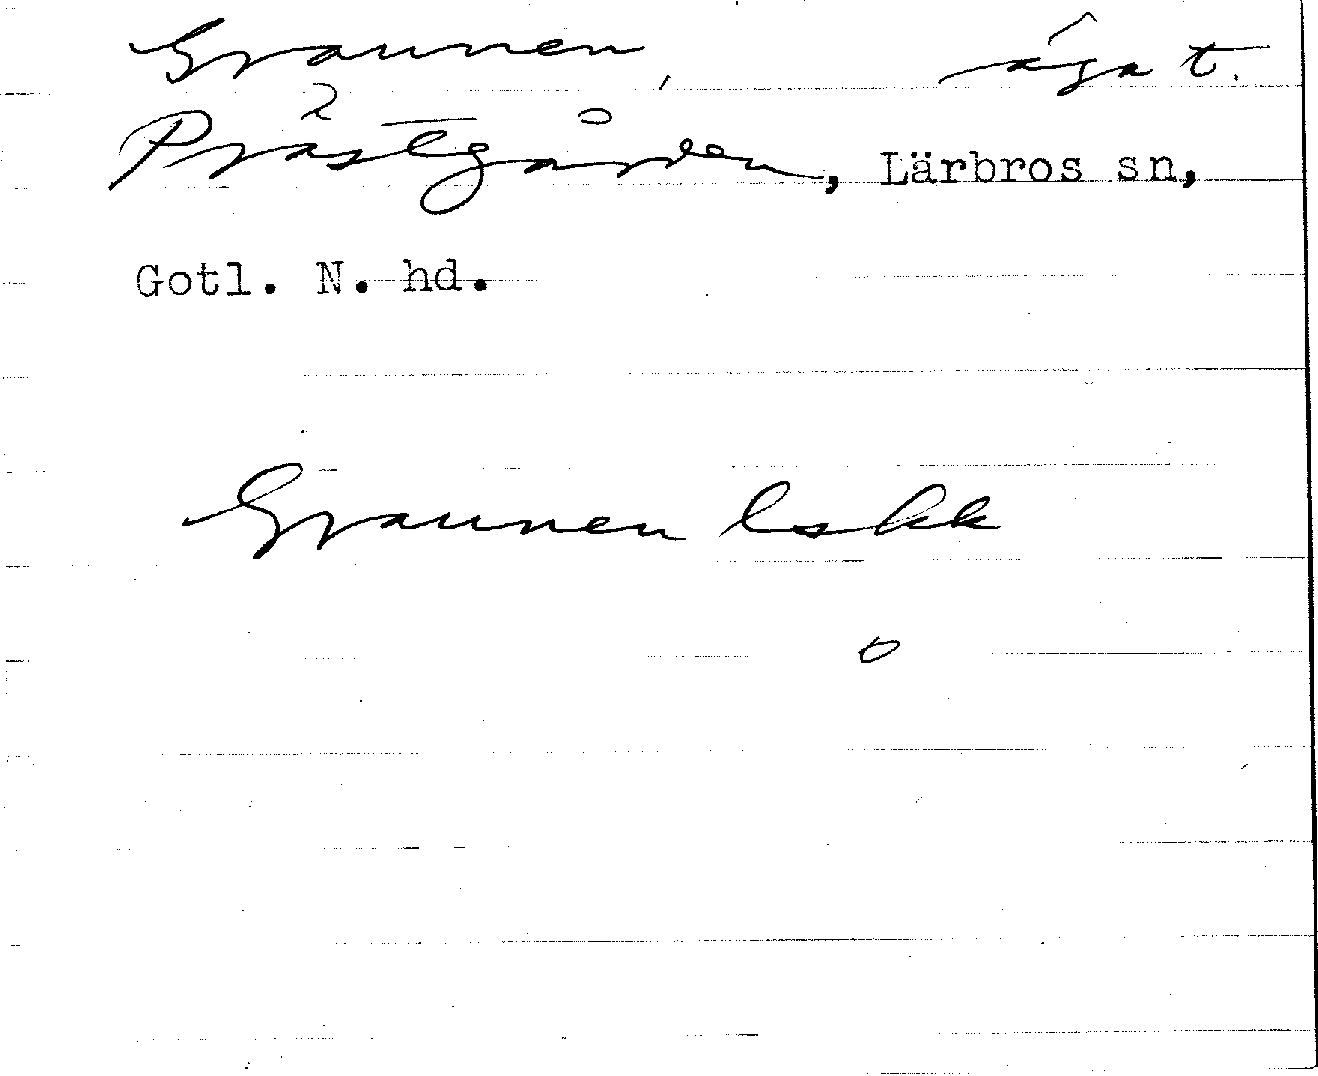 Graunen, äga t.
Prästgården, Lärbros sn,
Gotl. N. hd.
Graunen lskk
o